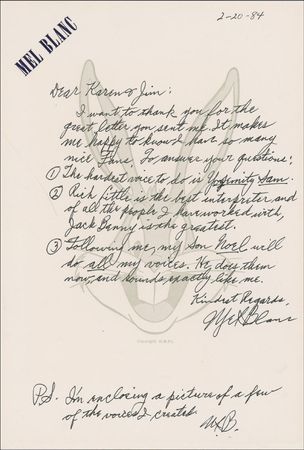 MEL BLANC
2-20-84
Dear Karen & Jim:
I want to thank you for the
great letter you sent me. It makes
me happy to know I have so many
nice fans. To answer your questions:
① The hardest voice to do is Yosemity Sam.
② Rich Little is the best interpreter and
of all the people I have worked with,
Jack Benny is the greatest.
③ Following me, my son Noel will
do all my voices. He does them
now, and sounds exactly like me.
Kindest Regards,
Mel Blanc
P.S. I'm enclosing a picture of a few
of the voices I created.
M.B.